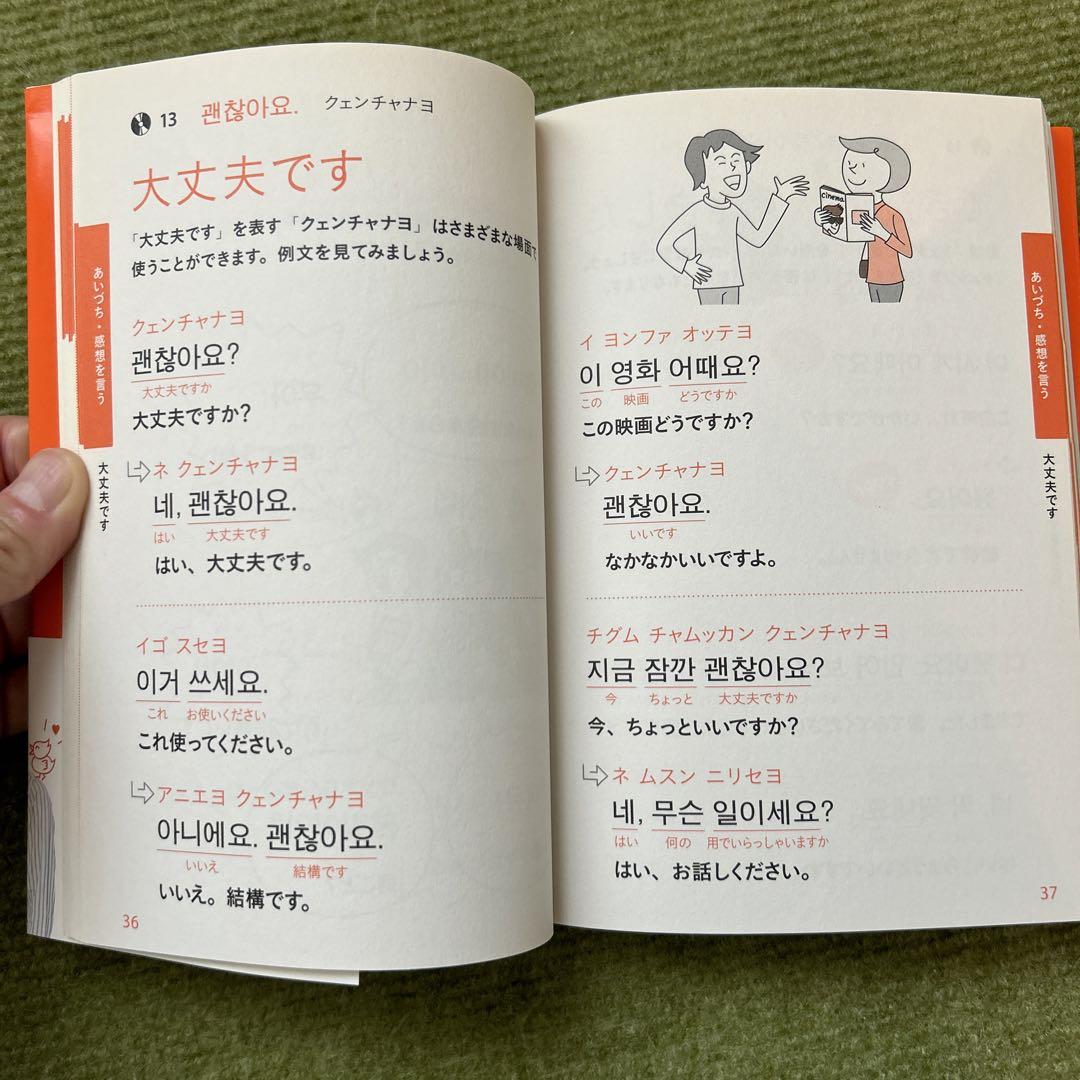 13 괜찮아요. クェンチャナヨ
大丈夫です
「大丈夫です」を表す「クェンチャナヨ」はさまざまな場面で
使うことができます。例文を見てみましょう。
クェンチャナヨ
괜찮아요?
大丈夫ですか
大丈夫ですか?
ネ クェンチャナヨ
네, 괜찮아요.
はい 大丈夫です
はい、大丈夫です。
イゴ スセヨ
이거 쓰세요.
これ お使いください
これ使ってください。
アニエヨ クェンチャナヨ
아니에요. 괜찮아요.
いいえ 結構です
いいえ。結構です。
36
あいづち・感想を言う
大丈夫です
cinema
イ ヨンファ オッテヨ
이 영화 어때요?
この 映画 どうですか
この映画どうですか?
クェンチャナヨ
괜찮아요.
いいです
なかなかいいですよ。
チグム チャムッカン クェンチャナヨ
지금 잠깐 괜찮아요?
今 ちょっと 大丈夫ですか
今、ちょっといいですか?
ネ ムスン ニリセヨ
네, 무슨 일이세요?
はい 何の 用でいらっしゃいますか
はい、お話しください。
37
あいづち・感想を言う
大丈夫です